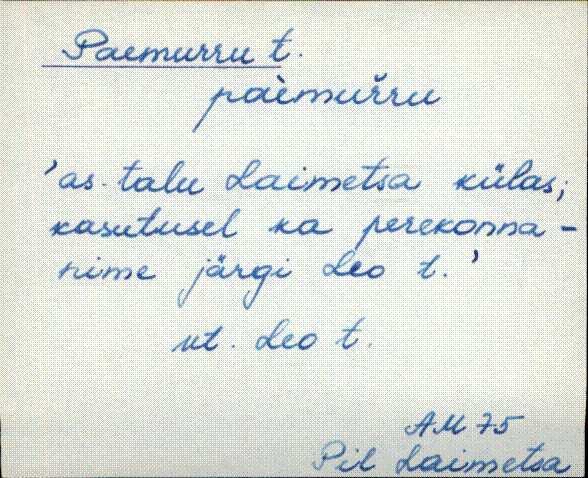 Paemurru t.
paè̬muřru
'as. talu Laimetsa külas;
kasutusel ka perekonna-
nime järgi Leo t.'
vt. Leo t.
AM 75
Pil Laimetsa